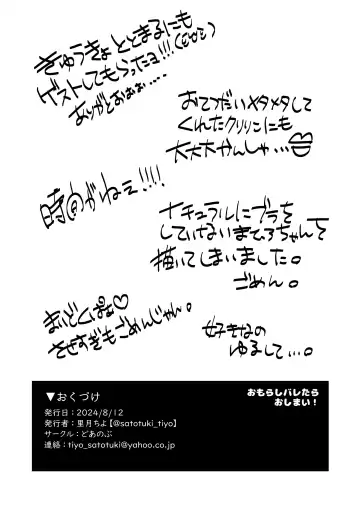 きゅうきょ ととまるにも
ゲストしてもらったヨ!!!
ありがとおぉぉ……
おてつだいメタメタして
くれたクリリンにも
大大大かんしゃ…
時間がねェ!!!!
ナチュラルにブラを
していないまひろちゃんを
描いてしまいました。
ごめん。
まいどくぱぁ♡
させすぎもごめんじゃん。
好きなの
ゆるして…。
▼おくづけ
発行日：2024/8/12
発行者：里月ちよ【@satotuki_tiyo】
サークル：どあのぶ
連絡：tiyo_satotuki@yahoo.co.jp
おもらしバレたら
おしまい！